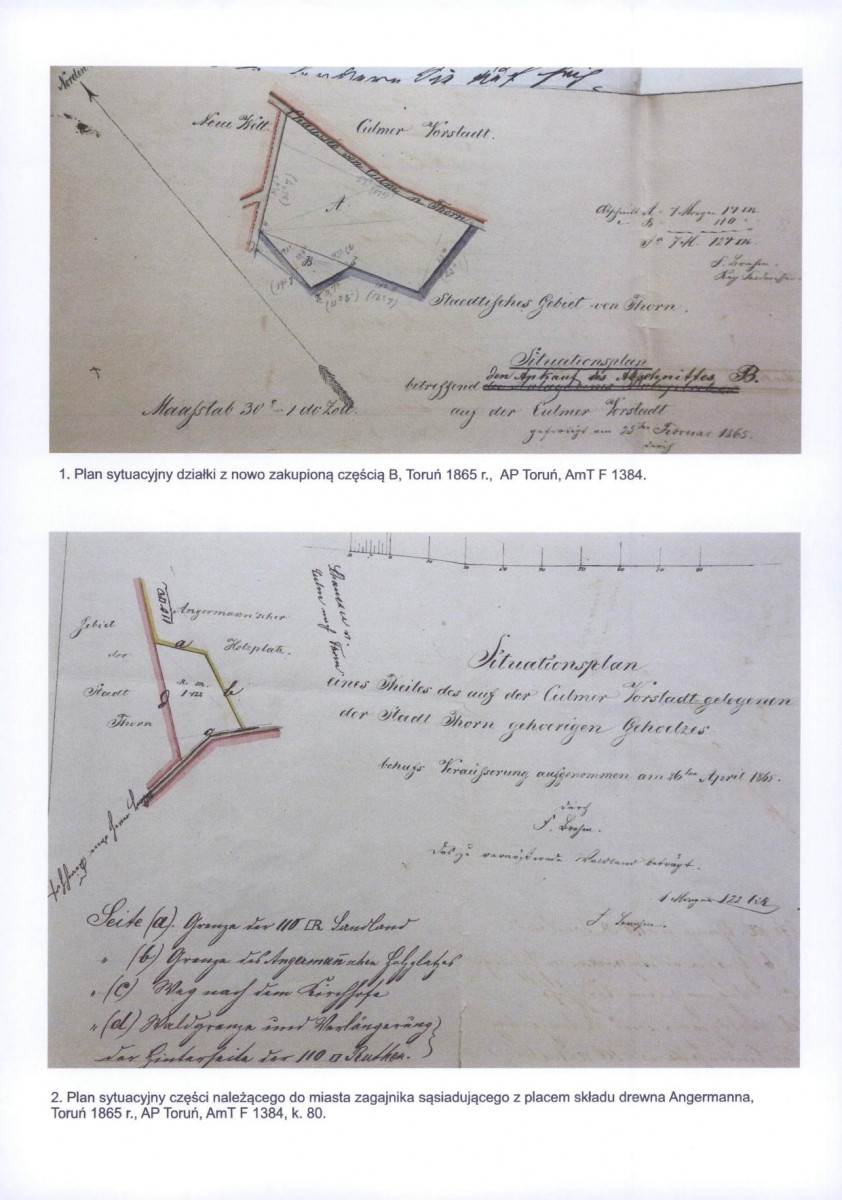 Norden
Neue Welt.
Culmer Vorstadt.
Chaussée von Culm n. Thorn
A
B
Abschnitt A = 7 Morgen 17 □R.
" B 110 "
Sa 7 M. 127 □R.
F. Brohm.
Staedtisches Gebiet von Thorn.
Situationsplan
den Ankauf des Abschnittes B.
betreffend
auf der Culmer Vorstadt
gefertigt am 25ten Februar 1865.
durch
Maaßstab 30° = 1 do Zoll.
1. Plan sytuacyjny działki z nowo zakupioną częścią B, Toruń 1865 r., AP Toruń, AmT F 1384.
Chaussee v.
Culm nach Thorn
Angermann'scher
Holzplatz.
Gebiet
der
Stadt
Thorn
a
b
c
d
Situationsplan
eines Theiles des auf der Culmer Vorstadt gelegenen
der Stadt Thorn gehoerigen Gehoelzes
behufs Veräußerung aufgenommen am 26ten April 1865.
durch
F. Brohm.
Das zu veräußernde Waldland beträgt.
1 Morgen 122 □R
F. Brohm.
Weg nach dem Kirchhofe
Seite (a). Grenze der 110 □R Landland
" (b) Grenze des Angermannschen Holzplatzes
" (c) Weg nach dem Kirchhofe
" (d) Waldgrenze und Verlängerung
der Hinterseite der 110 □ Ruthen.
2. Plan sytuacyjny części należącego do miasta zagajnika sąsiadującego z placem składu drewna Angermanna,
Toruń 1865 r., AP Toruń, AmT F 1384, k. 80.